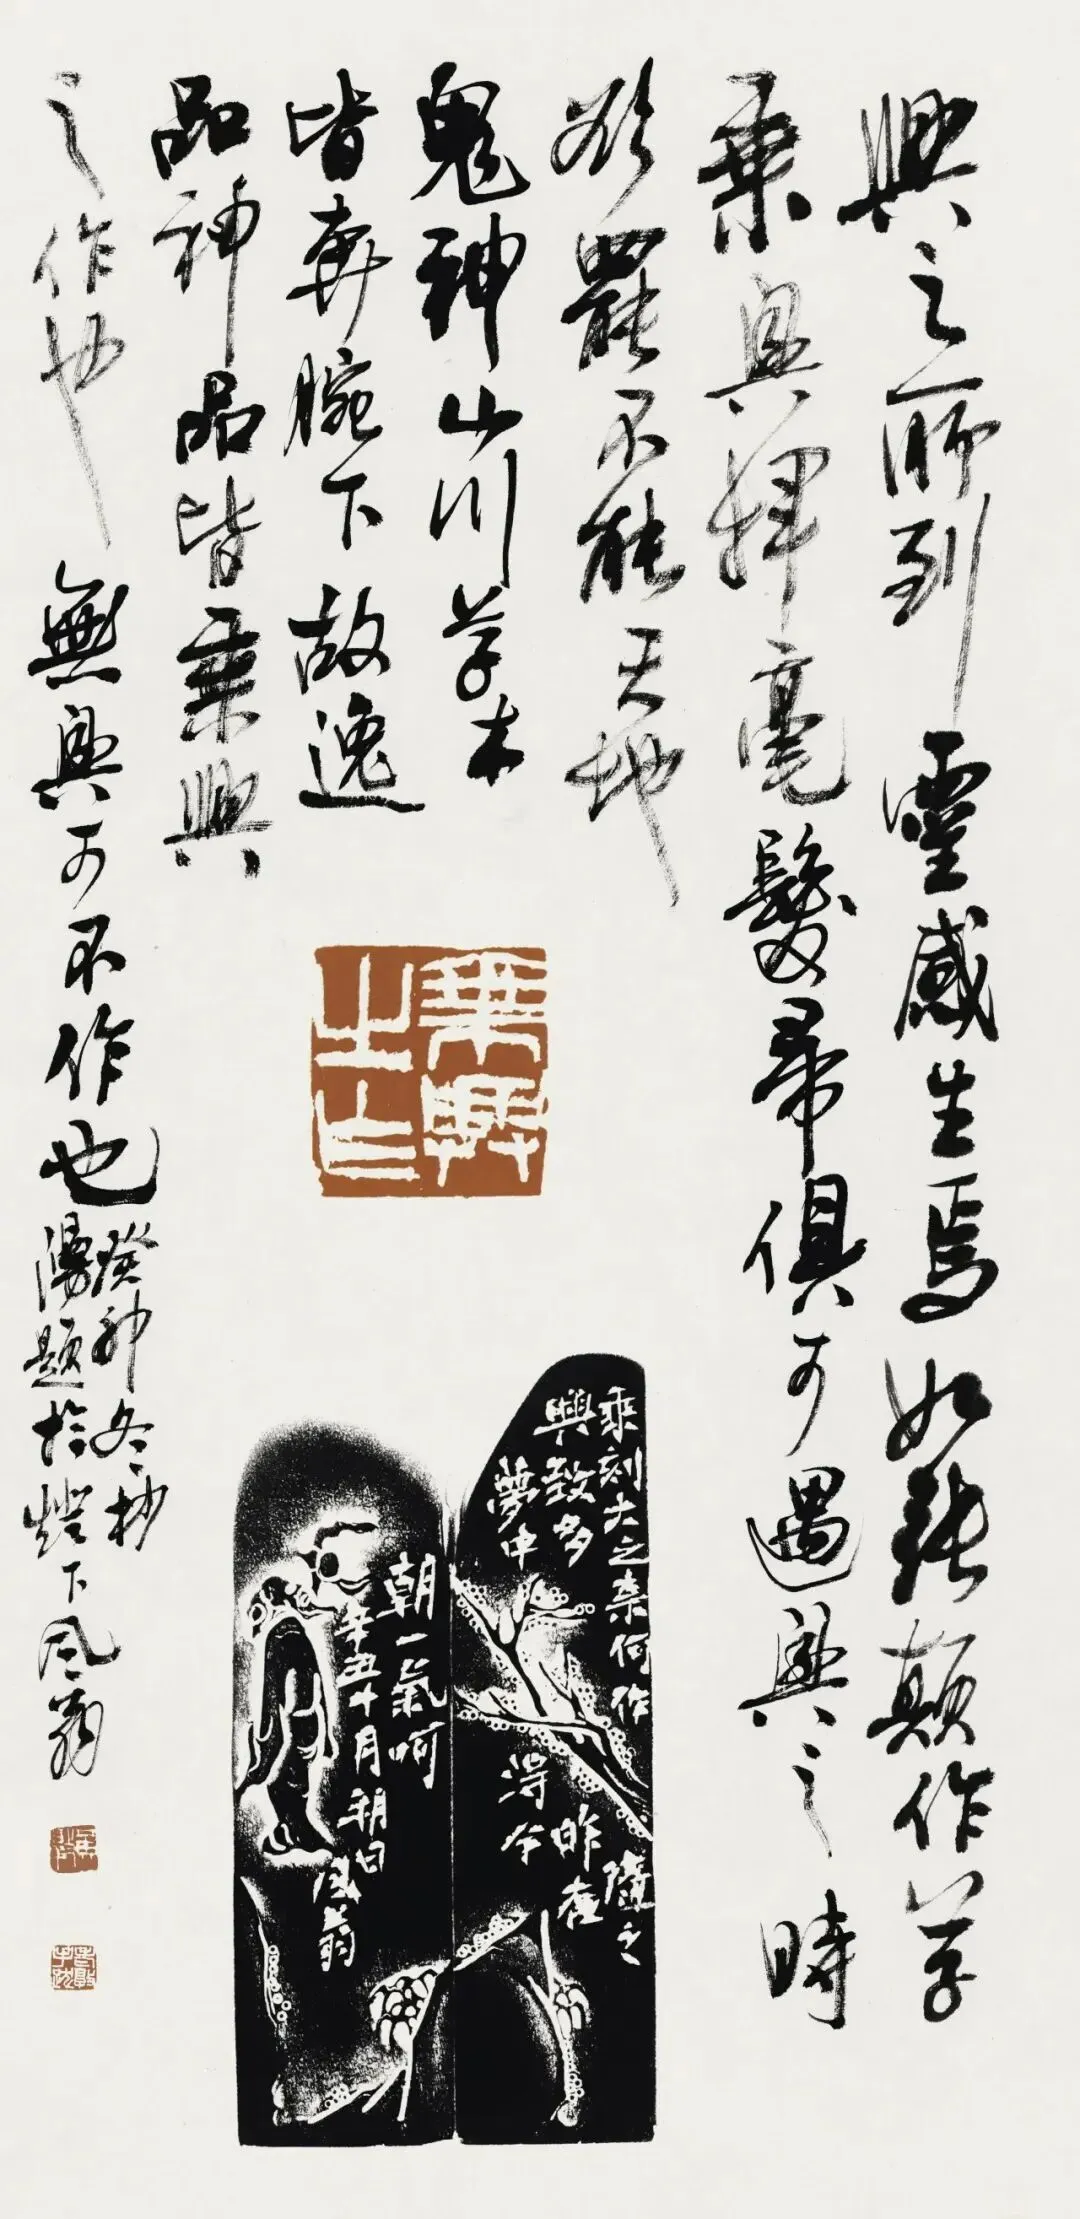 興之所到靈感生焉如張顛作草
乘興揮毫髮帚俱可遇興之時
欲罷不能天地
鬼神山川草木
皆奔腕下故逸
品神品皆乘興
之作也無興可不作也
癸卯冬杪
漫題於燈下風翁
乘興
乘刻大之柰何作隨之
興致多昨夜
夢中得今
朝一氣呵
辛丑十月朔日風翁